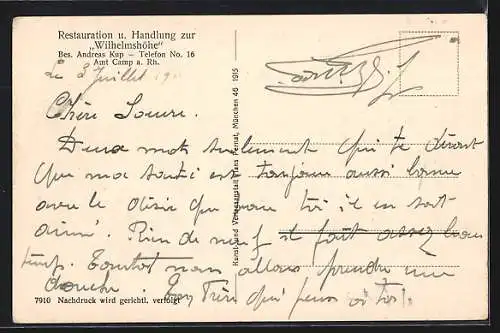 Restauration u. Handlung zur
„Wilhelmshöhe"
Bes. Andreas Kup — Telefon No. 16
Amt Camp a. Rh.
Le 3 Juillet
Chère Soeure.
Deux mots seulement qui te diront
que ma santé est toujours aussi bonne
avec le désir que pour toi il en soit
ainsi. Rien de neuf il fait assez beau
temps. Tantot nous allons prendre une
douche. Ton Frère qui pense à toi.
7910 Nachdruck wird gerichtl. verfolgt
Kunst- und Verlagsanstalt Hans Pernat, München 46 1915